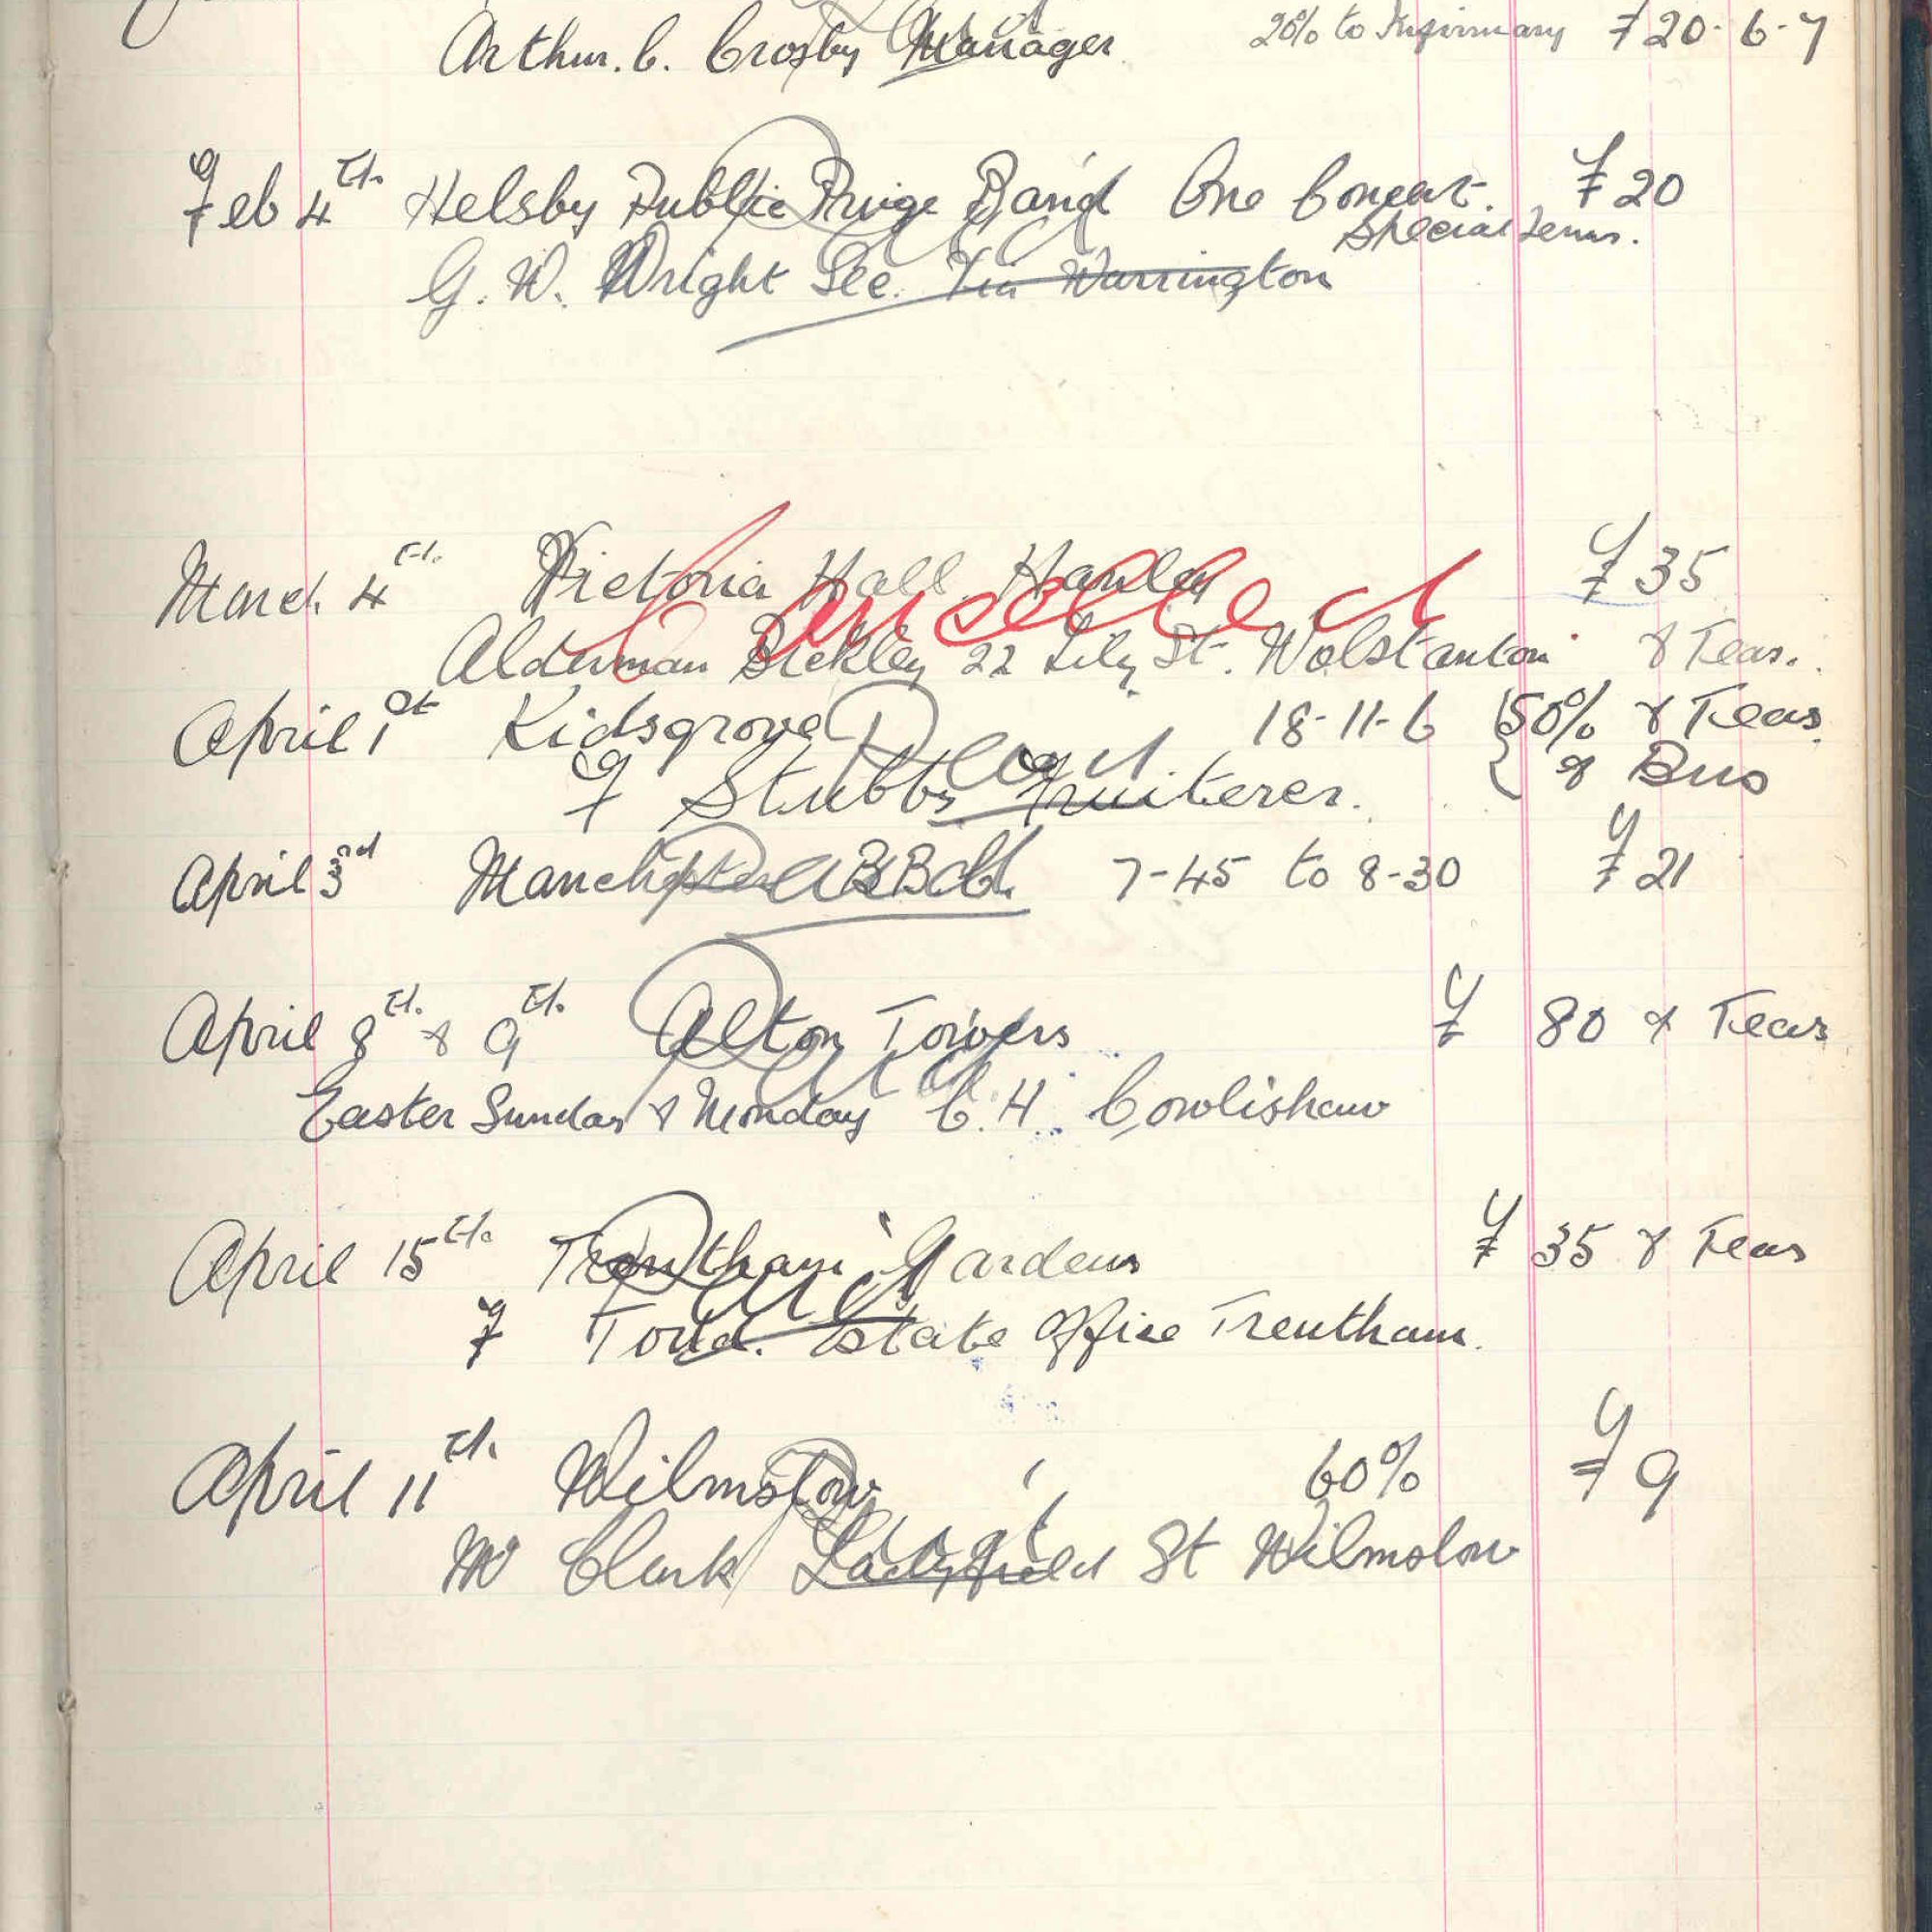 Arthur. C. Crosby Manager 20% to Infirmary £20-6-7
Feb 4th. Helsby Public Prize Band One Concert. £20
Special Terms.
G. W. Wright Sec. Via Warrington
Paid
March 4th. Victoria Hall. Hanley £35
Cancelled
Alderman 22 Lily St. Wolstanton & Teas.
April 1st Kidsgrove 18-11-6 50% & Teas.
& Bus
Paid
F Stubbs Fruiterer.
April 3rd Manchester BBC. 7-45 to 8-30 £21
Paid
April 8th. & 9th. Alton Towers £80 & Teas
Paid
Easter Sunday & Monday C. H. Cowlishaw
April 15th. Trentham Gardens £35 & Teas
Paid
F Estate Office Trentham.
April 11th. Wilmslow 60% £9
Paid
Mr Clark Ladyfield St Wilmslow